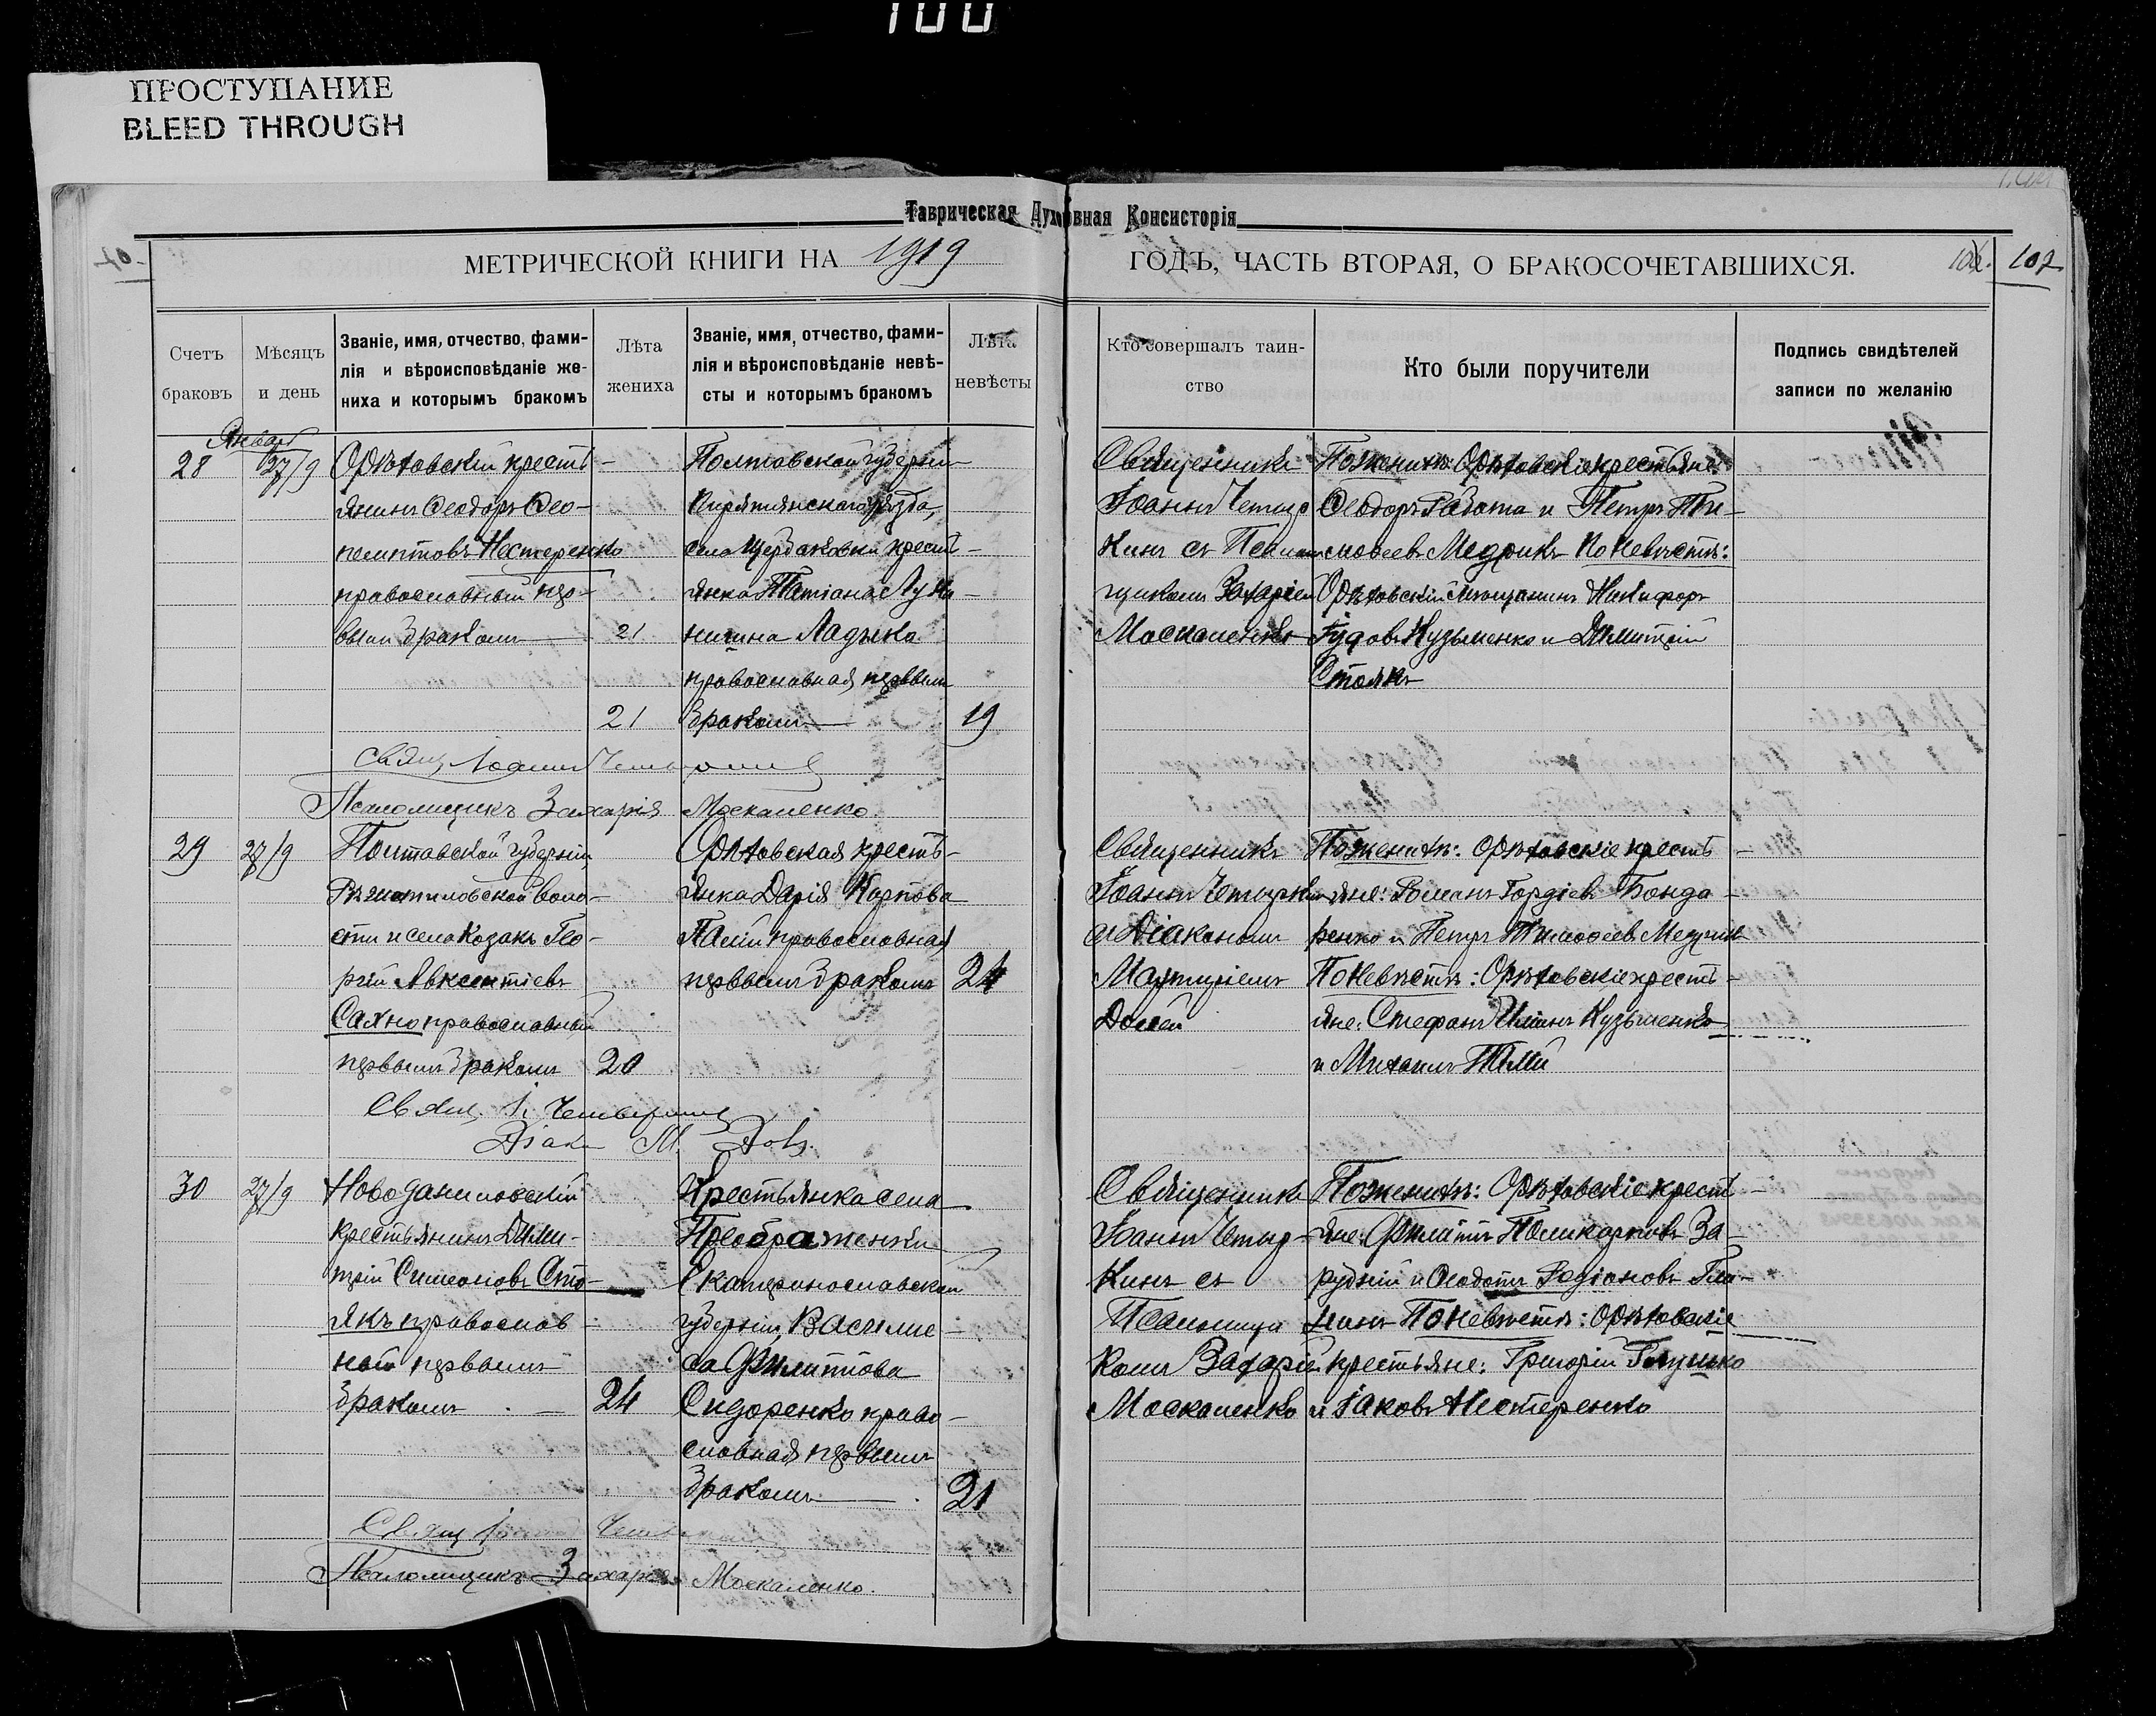 100
ПРОСТУПАНИЕ
BLEED THROUGH
Таврическая Духовная Консисторія
МЕТРИЧЕСКОЙ КНИГИ НА 1919
ГОДЪ, ЧАСТЬ ВТОРАЯ, О БРАКОСОЧЕТАВШИХСЯ.
107
Счетъ браковъ
Мѣсяцъ и день
Званіе, имя, отчество, фами-
лія и вѣроисповѣданіе же-
ниха и которымъ бракомъ
Лѣта жениха
Званіе, имя, отчество, фами-
лія и вѣроисповѣданіе невѣ-
сты и которымъ бракомъ
Лѣта невѣсты
Кто совершалъ таин-
ство
Кто были поручители
Подпись свидѣтелей
записи по желанію
28
27/9
Орѣховскій кресть-
янинъ Ѳеодоръ Ѳео-
пемптовъ Нестеренко
православный пер-
вымъ бракомъ 21
21
Полтавской губерніи
Пирятинскаго уѣзда,
села Щербаковки крест-
янка Татіана Луки-
нична Ладыка
православная первымъ
бракомъ
19
Священникъ
Іоаннъ Четыр-
кинъ съ Псалом-
щикомъ Захаріем
Москаленко
По женихѣ: Орѣховскіе крестьяне:
Ѳеодоръ Работа и Петръ Ти-
моѳеевъ Медрикъ По невѣстѣ:
Орѣховскій мѣщанинъ Никифоръ
Кузьменко и Димитрій
Стоякъ
Свящ. Іоаннъ
Псаломщикъ Захарія Москаленко
29
27/9
Полтавской губерніи,
воло-
сти и села козакъ Гео-
ргій Авксентіевъ
Сахно православный
первымъ бракомъ
20
Орѣховская кресть-
янка Дарія Карпова
Палій православная
первымъ бракомъ
24
Священникъ
Іоаннъ Четыркинъ
съ Діакономъ
Мартиріемъ
По женихѣ: Орѣховскіе кресть-
яне: Романъ Гордіевъ Бонда-
ренко и Петръ Тимоѳеевъ
По невѣстѣ: Орѣховскіе кресть-
яне: Стефанъ Кузьменко
и Михаилъ Палій
Свящ. І.
Діак. М.
30
27/9
Новоданиловскій
крестьянинъ Дими-
трій Симеоновъ Сто-
якъ православ-
ный первымъ
бракомъ
24
Крестьянка села
Преображенки
Екатеринославской
губерніи, Василис-
са Филиппова
Сидоренко право-
славная первымъ
бракомъ
21
Священникъ
Іоаннъ Четыр-
кинъ съ
Псаломщи-
комъ Захаріем
Москаленко
По женихѣ: Орѣховскіе крест-
яне: Филиппъ Поликарповъ За-
рудній и Ѳеодотъ Родіоновъ
По невѣстѣ: Орѣховскіе
крестьяне: Григорій Галушко
и Іаковъ Нестеренко
Свящ.
Псаломщикъ Захарія Москаленко.